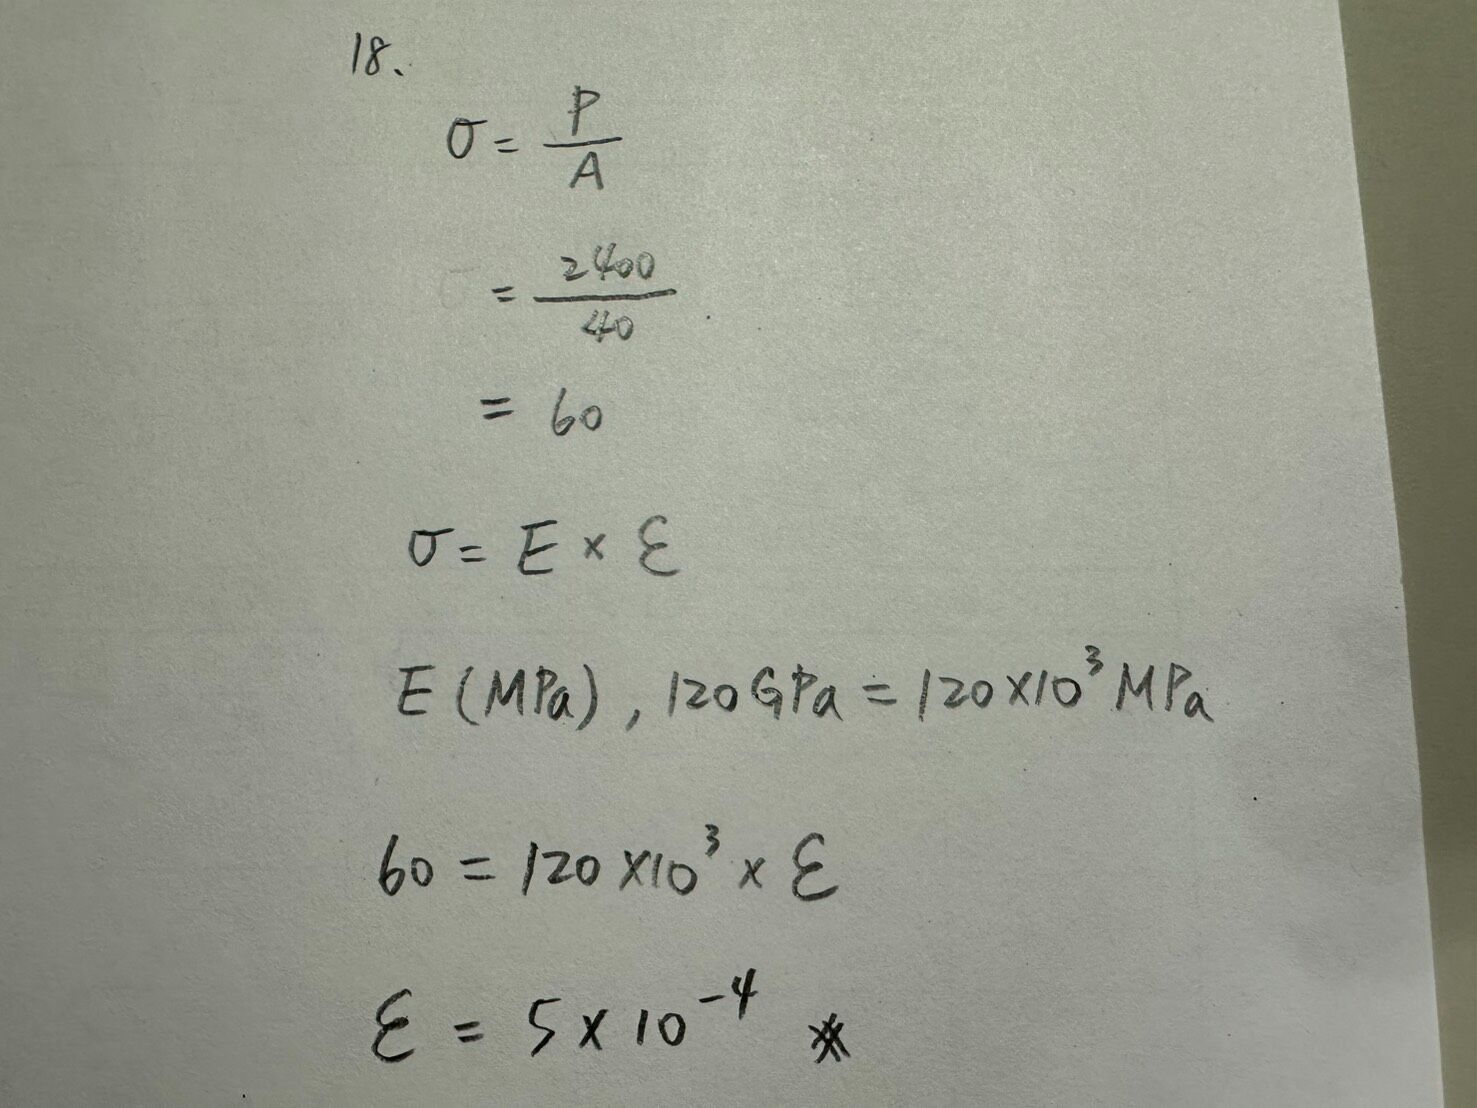 18.
σ = P/A
= 2400/40
= 60
σ = E × ε
E (MPa), 120GPa = 120×10³ MPa
60 = 120×10³ × ε
ε = 5×10⁻⁴ ※